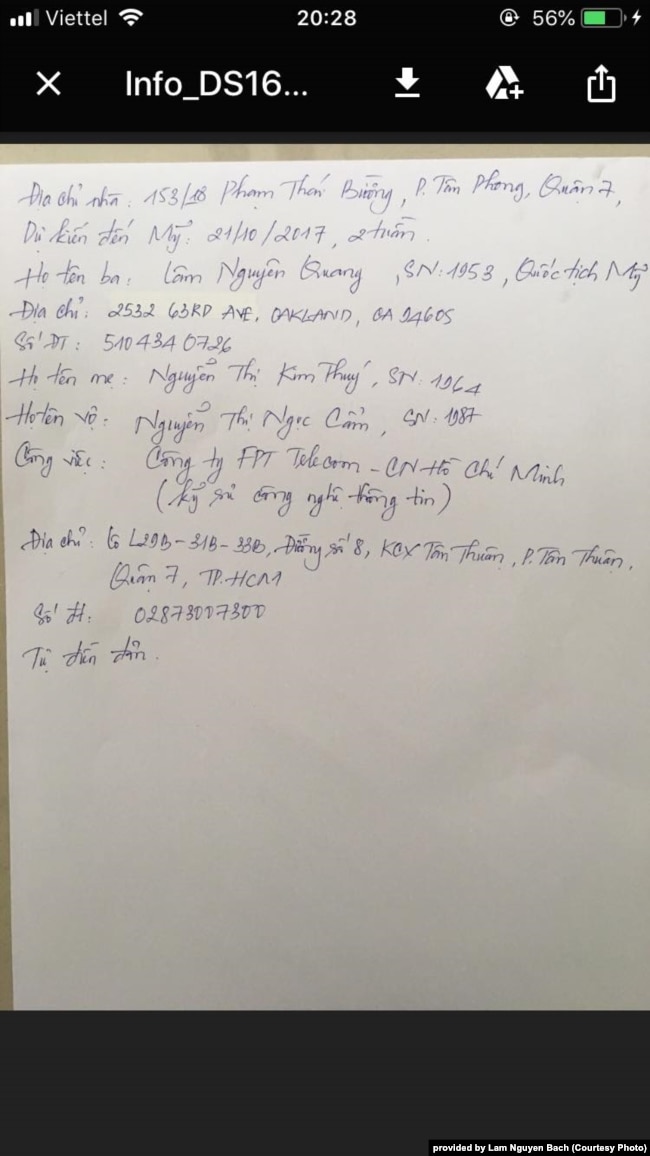 Viettel 20:28 56%
Info_DS16...
Địa chỉ nhà: 153/18 Phạm Thái Bường, P. Tân Phong, Quận 7,
Dự kiến đến Mỹ: 21/10/2017, 2 tuần.
Họ tên ba: Lâm Nguyên Quang, SN: 1953, Quốc tịch Mỹ
Địa chỉ: 2532 63RD AVE, OAKLAND, CA 94605
Số ĐT: 510 434 0726
Họ tên mẹ: Nguyễn Thị Kim Thuý, SN: 1964
Họ tên vợ: Nguyễn Thị Ngọc Cẩm, SN: 1987
Công việc: Công ty FPT Telecom - CN Hồ Chí Minh
(kỹ sư công nghệ thông tin)
Địa chỉ: Lô L29B-31B-33B, Đường số 8, KCX Tân Thuận, P. Tân Thuận,
Quận 7, TP. HCM
Số đt: 02873007300
Tự điền đơn.
provided by Lam Nguyen Bach (Courtesy Photo)